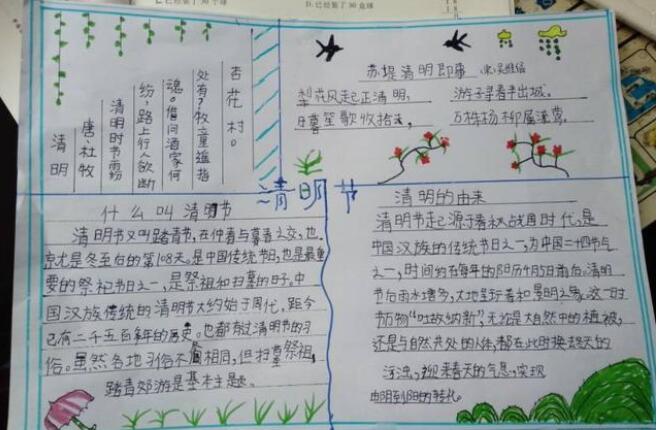 清明
唐、杜牧
清明时节雨粉
纷，路上行人欲断
魂。借问酒家何
处有？牧童遥指
杏花村。
苏堤清明即事 宋.吴惟信
梨花风起正清明，
游子寻春半出城。
日暮笙歌收拾去，
万株杨柳属流莺。
清明节
什么叫清明节
清明节又叫踏青节，在仲春与暮春之交，也
就是冬至后的第108天。是中国传统节日，也是最重
要的祭祀节日之一，是祭祖和扫墓的日子。中
国汉族传统的清明节大约始于周代，距今
己有二千五百多年的历史。也都有过清明节的习
俗。虽然各地习俗不相同，但扫墓祭祖，
踏青郊游是基本主题。
清明的由来
清明节起源于春秋战国时代，是
中国汉族的传统节日之一，为中国二十四节气
之一，时间约在每年的阳历4月5日前后。清明
节后雨水增多，大地呈现春和景明之象。这一时
节万物“吐故纳新”，无论是大自然中的植被，
还是与自然共处的人体，都在此时换去冬天的
污浊，迎来春天的气息，实现
由阴到阳的转化。